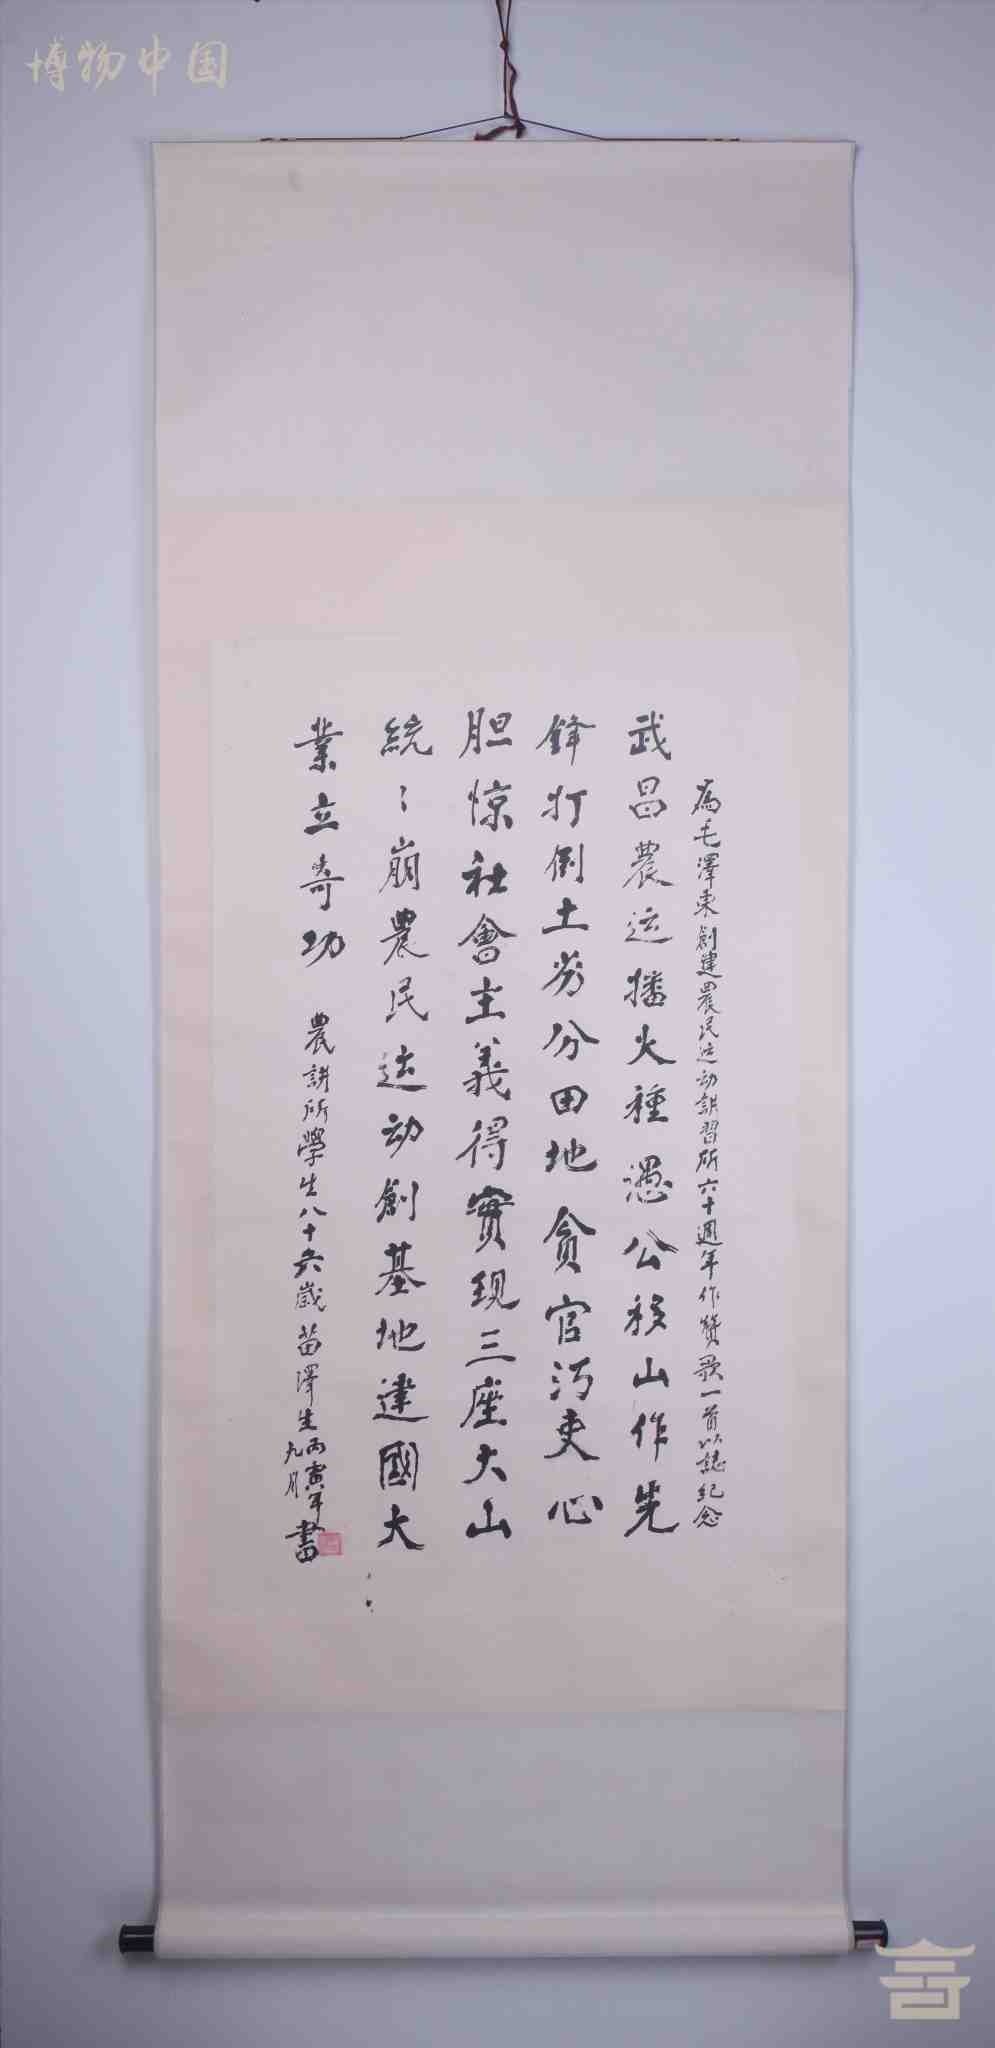 博物中国
為毛澤東創建農民运动講習所六十週年作贊歌一首以誌紀念
武昌農运播火種愚公移山作先
鋒打倒土劣分田地貪官汚吏心
胆惊社會主義得實现三座大山
統：崩農民运动創基地建國大
業立奇功
農講所學生八十六歲苗澤生丙寅年九月書